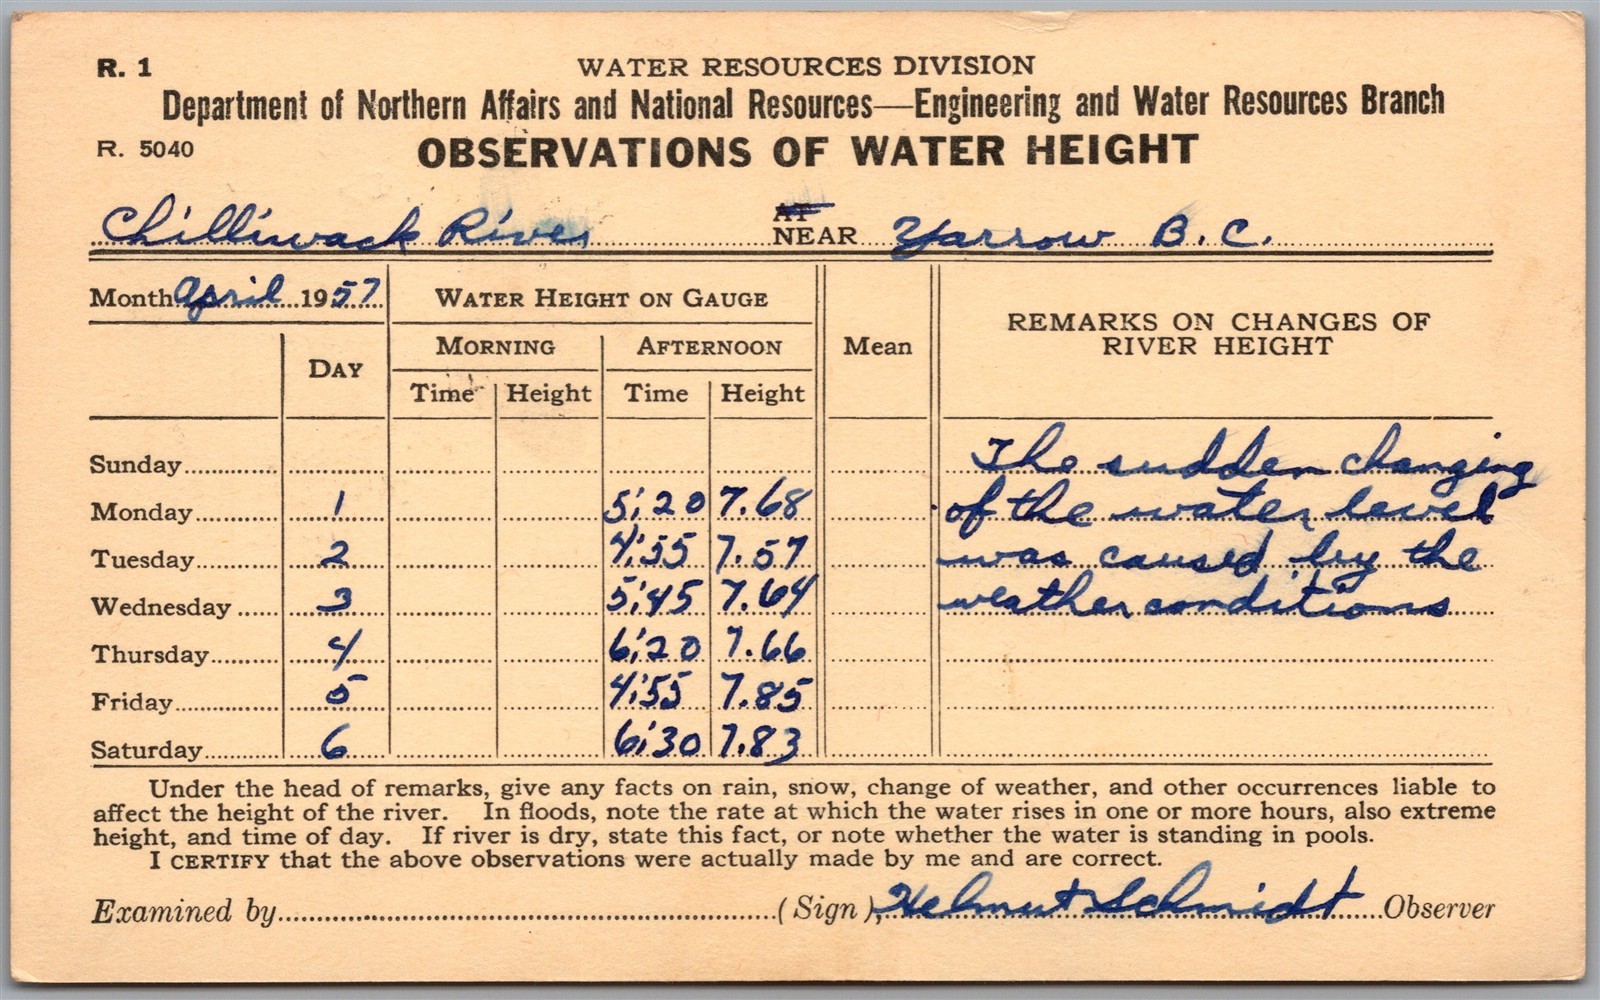 R. 1
WATER RESOURCES DIVISION
Department of Northern Affairs and National Resources—Engineering and Water Resources Branch
R. 5040
OBSERVATIONS OF WATER HEIGHT
AT
Chilliwack River NEAR Yarrow B.C.
Month April 1957
WATER HEIGHT ON GAUGE
REMARKS ON CHANGES OF
RIVER HEIGHT
DAY
MORNING AFTERNOON Mean
Time Height Time Height
Sunday The sudden changing
Monday 1 5:20 7.68 of the water level
Tuesday 2 4:55 7.57 was caused by the
Wednesday 3 5:45 7.64 weather conditions
Thursday 4 6:20 7.66
Friday 5 4:55 7.85
Saturday 6 6:30 7.83
Under the head of remarks, give any facts on rain, snow, change of weather, and other occurrences liable to
affect the height of the river. In floods, note the rate at which the water rises in one or more hours, also extreme
height, and time of day. If river is dry, state this fact, or note whether the water is standing in pools.
I CERTIFY that the above observations were actually made by me and are correct.
Examined by (Sign), Helmut Schmidt Observer